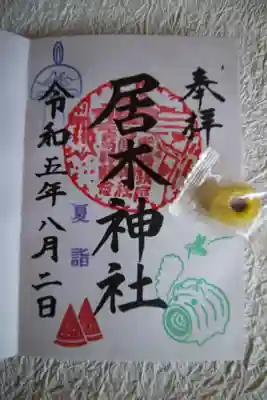 奉拝
居木神社
夏詣
令和五年八月二日